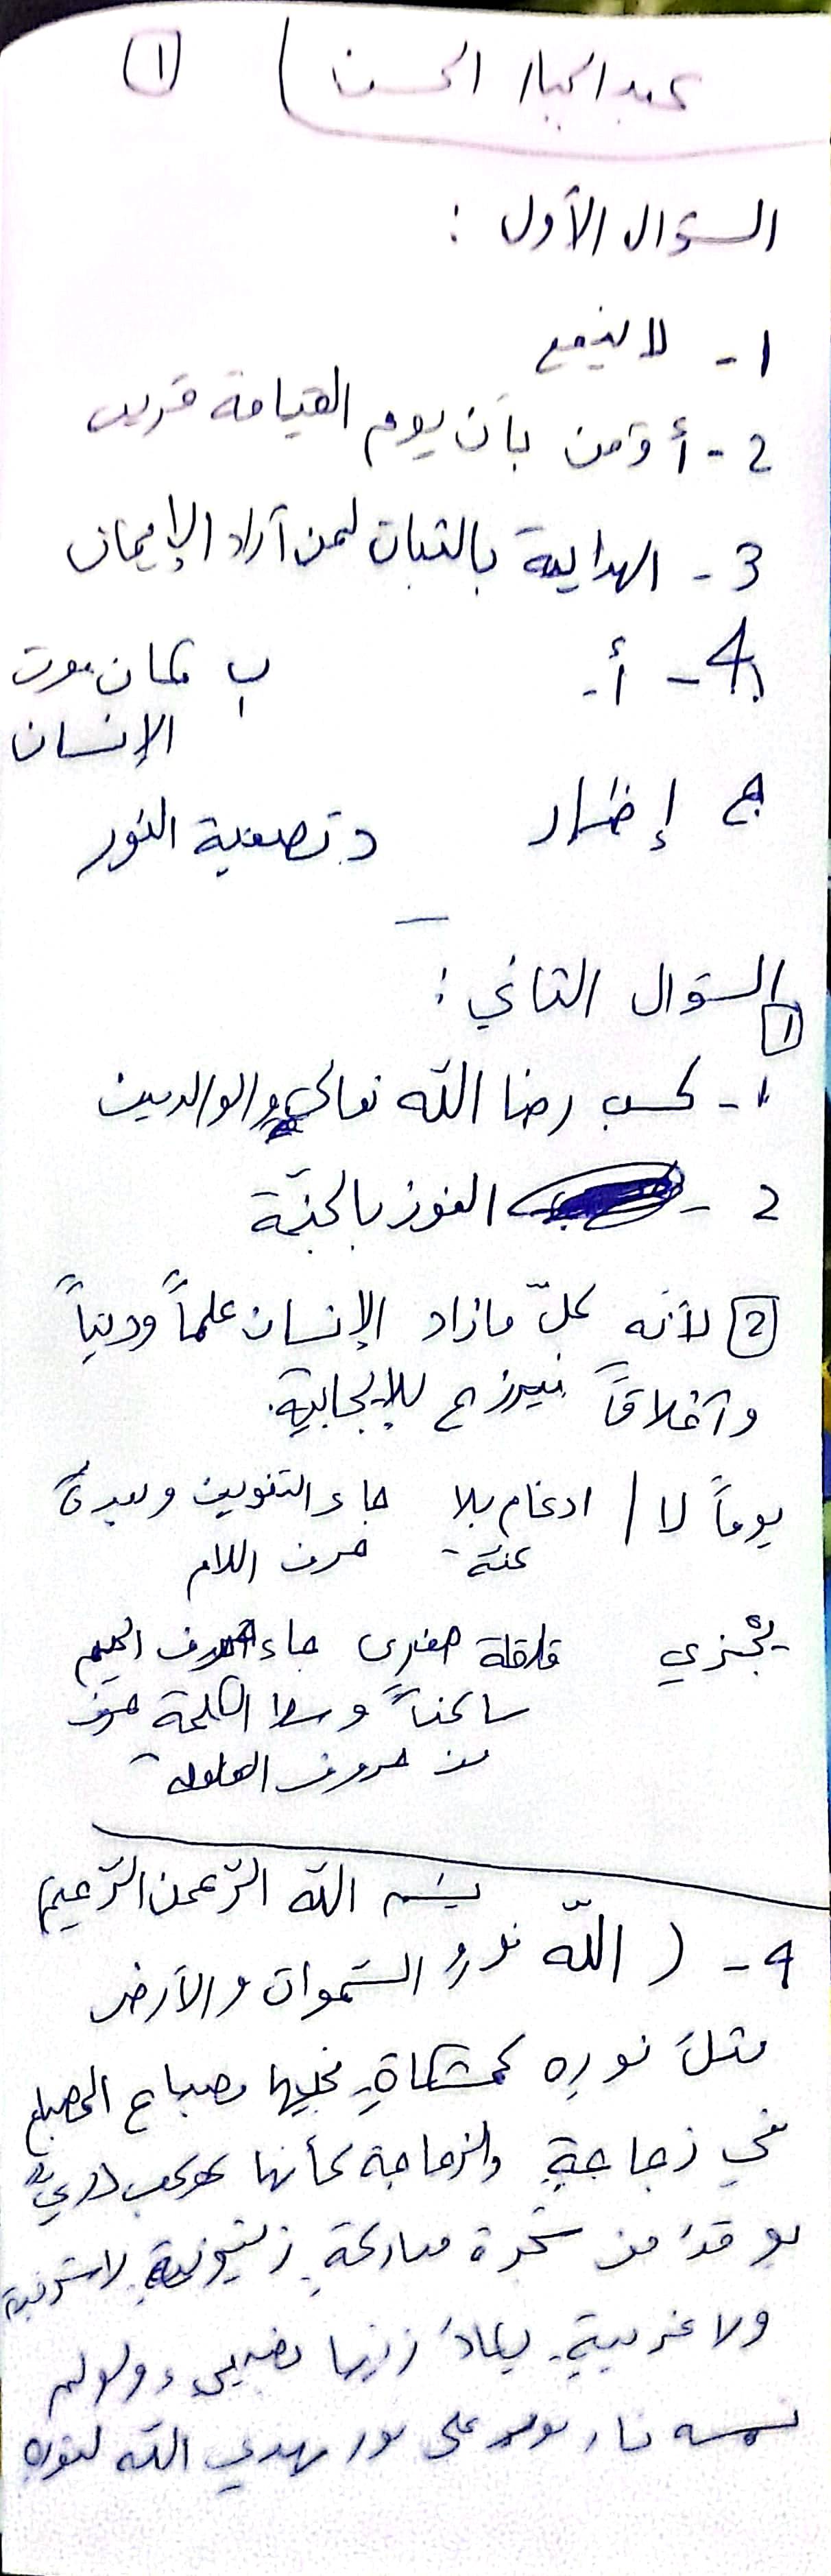 عبد الجبار الحسن (1)
السؤال الأول :
1 - لا ينفع
2 - أؤمن بأن يوم القيامة قريب
3 - الهداية بالثبات لمن أراد الإيمان
4 - أ - ب مكان موت
الإنسان
ج إظهار د تصفية النور
السؤال الثاني :
1
1 - كسب رضا الله تعالى والوالدين
2 - الفوز بالجنّة
2 لأنه كلّ ما زاد الإنسان علماً وديناً
وأخلاقاً للإيجابية.
يوماً لا / ادغام بلا جاء التنوين وبعده
غنة حرف اللام
يجْزي قلقلة صغرى جاء حرف الجيم
ساكناً وسط الكلمة حرف
من حروف القلقلة
بسم الله الرّحمن الرّحيم
4 - ( اللّه نورُ السّموات والأرض
مثلُ نورِه كمشكاةٍ فيها مصباح المصباح
في زجاجةٍ والزجاجة كأنها كوكب دريٌّ
يوقدُ من شجرة مباركةٍ زيتونةٍ لا شرقية
ولا غربيةٍ يكادُ زيتها يضيء ولو لم
تمسه نار نور على نور يهدي الله لنوره